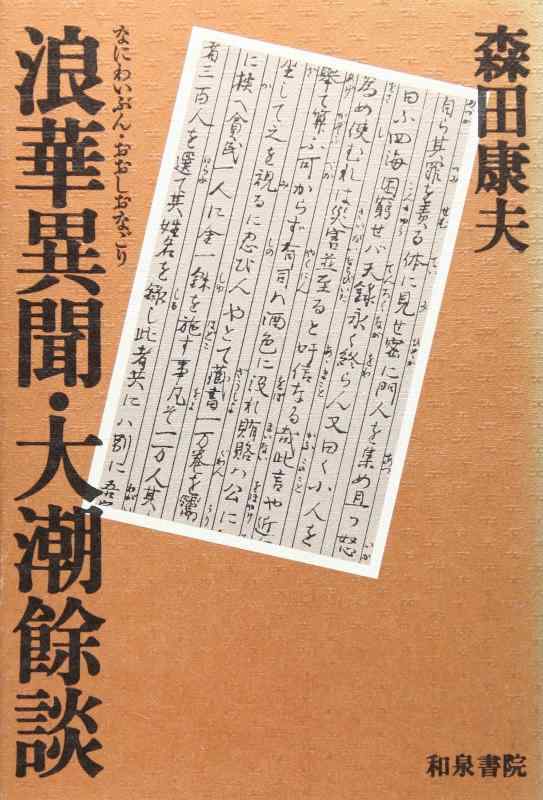 森田康夫
自ら其罪を責る体に見せ密に門人を集め且つ怒
曰ふ四海困窮せバ天録永く終らん又曰く小人を
為め使むれは災害並至ると吁信なる哉此言や近
挙て算ふ可からず有司ハ酒色に 賄賂ハ公に
坐して之を視るに忍びんやとて蔵書一万巻を鬻
に換へ貧民一人に金一銖を施す事凡そ一万人其
者三百人を選て其姓名を録し此者共にハ別に吾
なにわいぶん・おおしおなごり
浪華異聞・大潮餘談
和泉書院